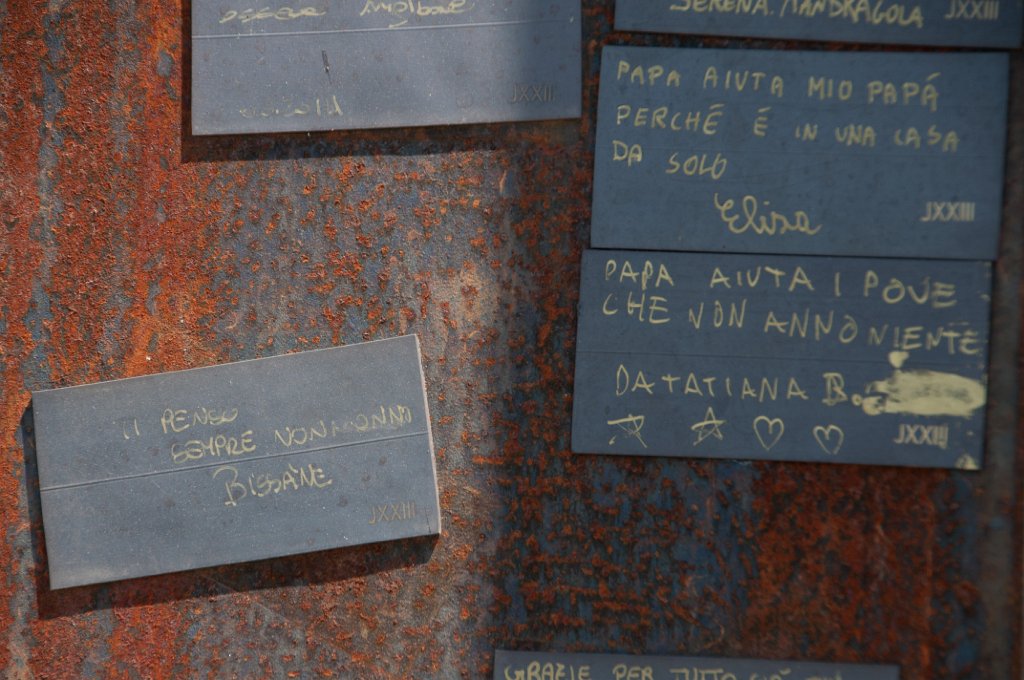 JXXIII
SERENA. MANDRAGOLA JXXIII
PAPA AIUTA MIO PAPÁ
PERCHÉ É IN UNA CASA
DA SOLO
Elisa
JXXIII
PAPA AIUTA I POVE
CHE NON ANNO NIENTE
DA TATIANA B.
JXXIII
TI PENSO
SEMPRE NONNONNO
BISSÀNE
JXXIII
GRAZIE PER TUTTO